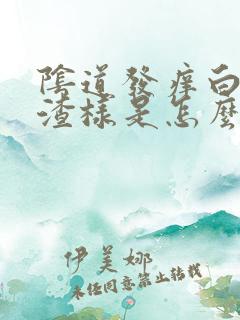 陰道發癢白
渣樣是怎麼
伊美娜
未經同意禁止轉載